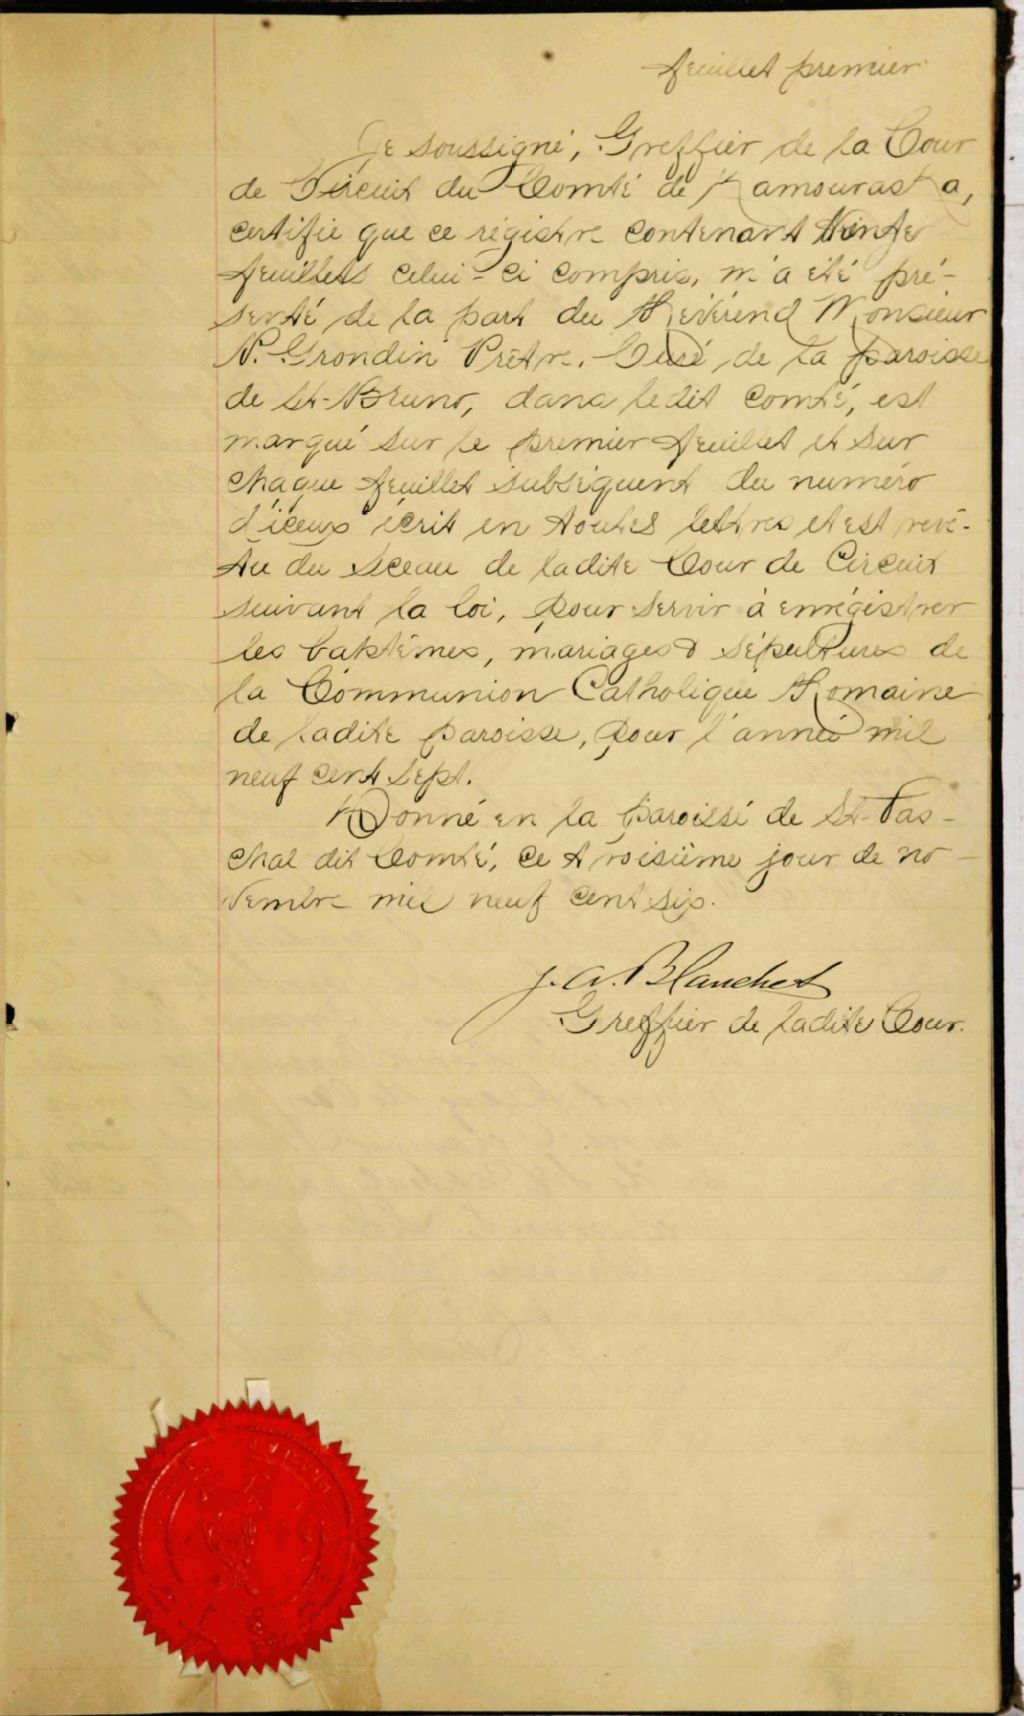 feuillet premier
Je soussigné, Greffier de la Cour
de Circuit du Comté de Kamouraska,
certifie que ce régistre contenant
feuillets celui-ci compris, m'a été pré-
senté de la part du Révérend Monsieur
N. Grondin Prêtre, Curé de la paroisse
de St-Bruno, dans ledit comté, est
marqué sur le premier feuillet et sur
chaque feuillet subséquent du numéro
d'iceux écrit en toutes lettres et est revê-
tu du sceau de ladite Cour de Circuit
suivant la loi, pour servir à enrégistrer
les baptêmes, mariages & sépultures de
la Communion Catholique Romaine
de ladite paroisse, pour l'année mil
neuf cent sept.
Donné en la paroisse de St-Pas-
chal dit Comté, ce troisième jour de no-
vembre mil neuf cent six.
J. A. Blanchet
Greffier de ladite Cour.